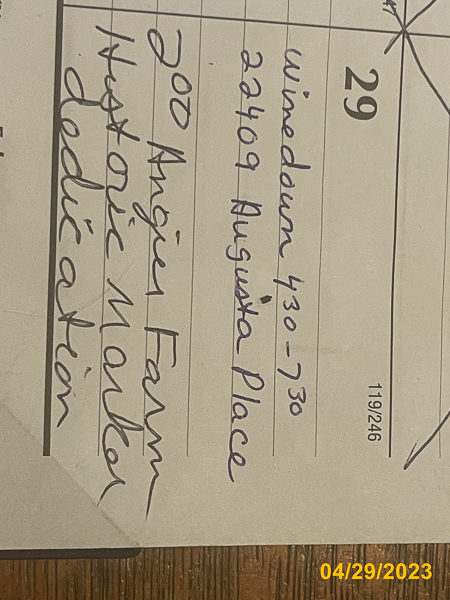 29
119/246
winedown 430-730
22409 Augusta Place
200 Angier Farm
Historic Marker
dedication
04/29/2023